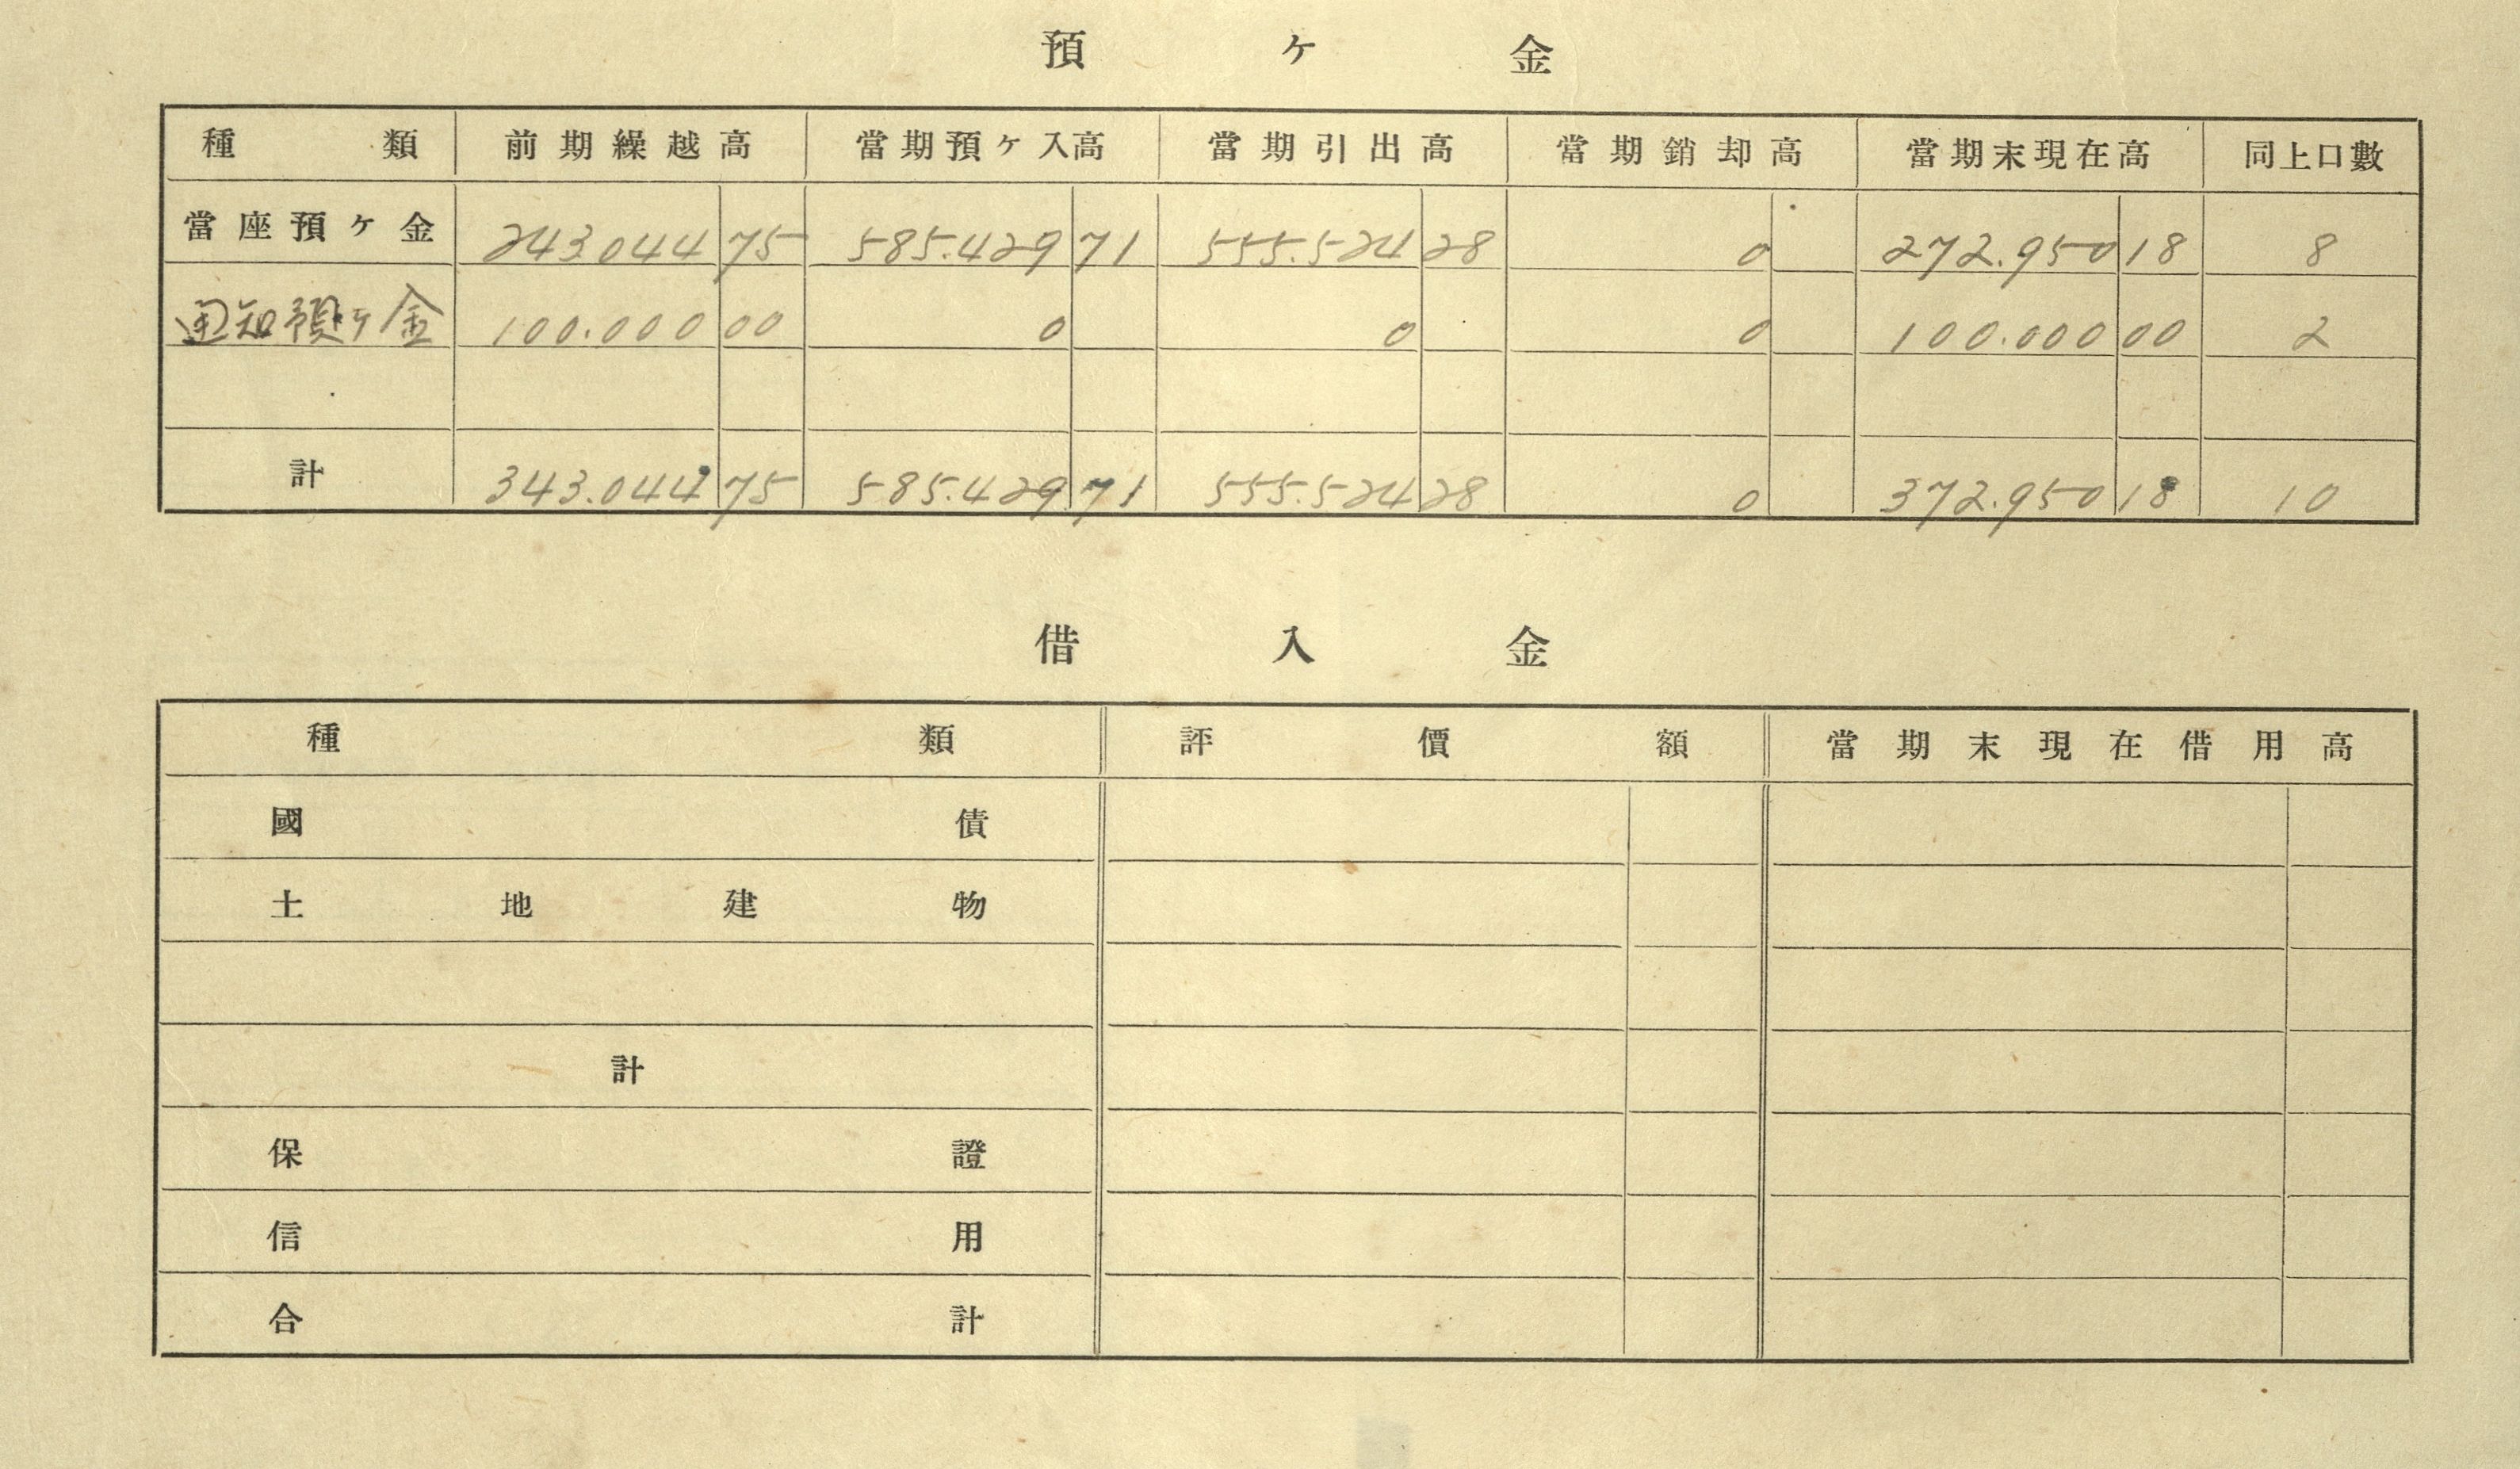 預ケ金
種類 前期繰越高 當期預ケ入高 當期引出高 當期銷却高 當期末現在高 同上口數
當座預ケ金 243.044 75 585.429 71 555.524 28 0 272.950 18 8
通知預ケ金 100.000 00 0 0 0 100.000 00 2
計 343.044 75 585.429 71 555.524 28 0 372.950 18 10
借入金
種類 評價額 當期末現在借用高
國債
土地建物
計
保證
信用
合計